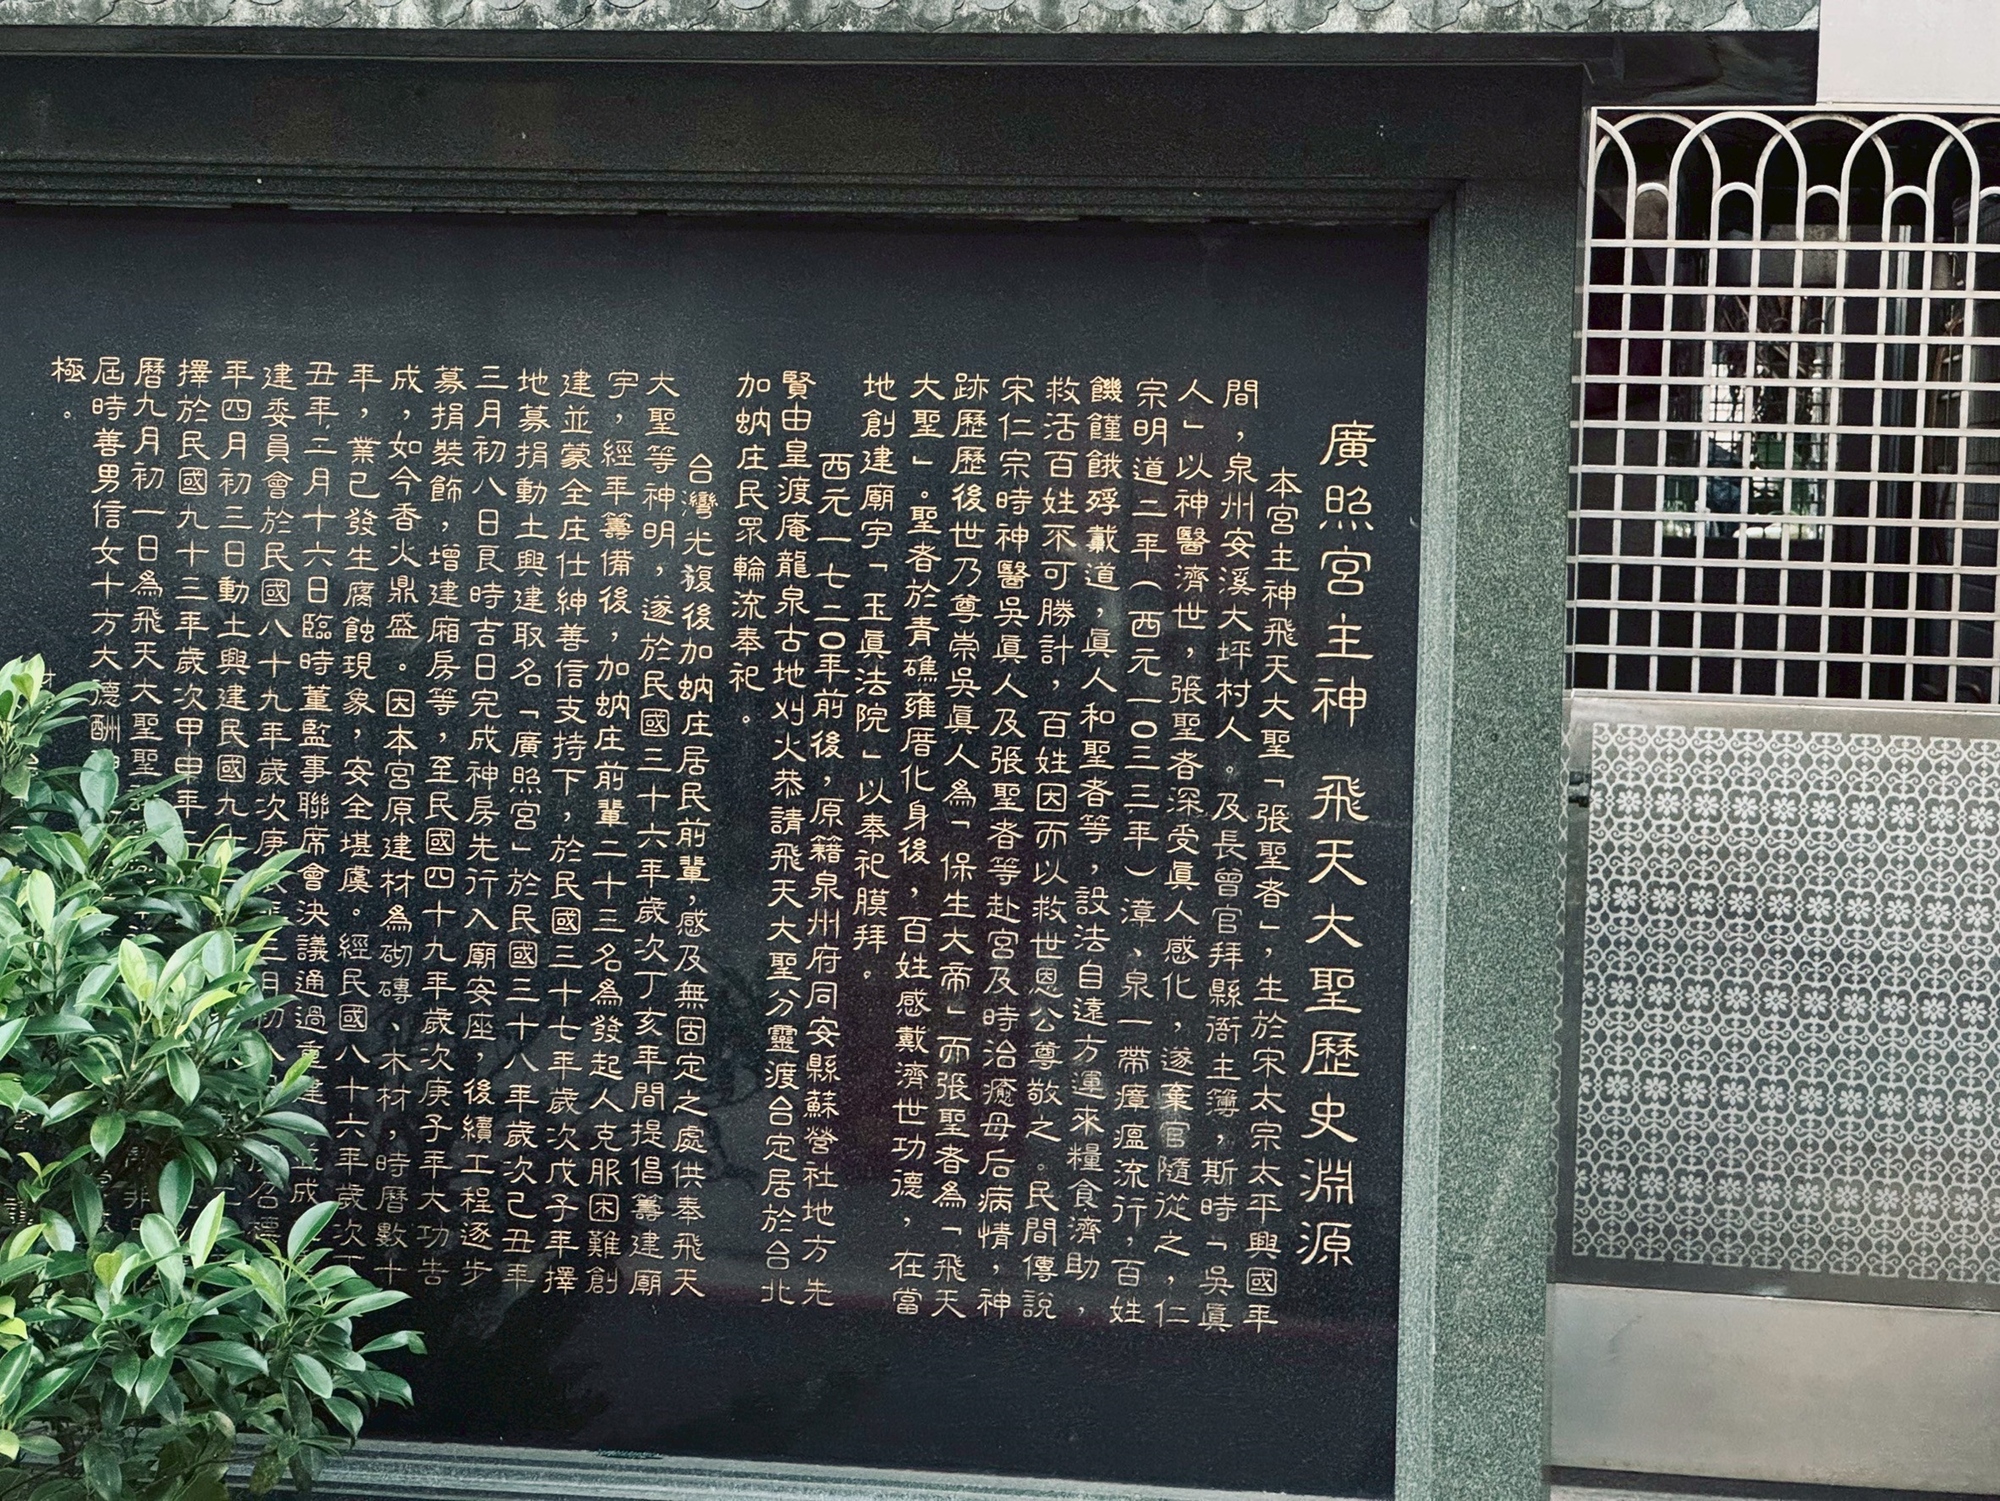 廣照宮主神 飛天大聖歷史淵源
本宮主神飛天大聖「張聖者」，生於宋太宗太平興國年
間，泉州安溪大坪村人。及長曾官拜縣衙主簿，斯時「吳眞
人」以神醫濟世，張聖者深受眞人感化，遂棄官隨從之，仁
宗明道二年（西元一０三三年）漳、泉一帶瘴瘟流行，百姓
饑饉餓殍載道，眞人和聖者等，設法自遠方運來糧食濟助，
救活百姓不可勝計，百姓因而以救世恩公尊敬之。民間傳說
宋仁宗時神醫吳眞人及張聖者等赴宮及時治癒母后病情，神
跡歷歷後世乃尊崇吳眞人為「保生大帝」而張聖者為「飛天
大聖」。聖者於青礁雍厝化身後，百姓感戴濟世功德，在當
地創建廟宇「玉眞法院」以奉祀膜拜。
西元一七二０年前後，原籍泉州府同安縣蘇營社地方先
賢由皇渡庵龍泉古地刈火恭請飛天大聖分靈渡台定居於台北
加蚋庄民眾輪流奉祀。
台灣光複後加蚋庄居民前輩，感及無固定之處供奉飛天
大聖等神明，遂於民國三十六年歲次丁亥年間提倡籌建廟
宇，經年籌備後，加蚋庄前輩二十三名為發起人克服困難創
建並蒙全庄仕紳善信支持下，於民國三十七年歲次戊子年擇
地募捐動土興建取名「廣照宮」於民國三十八年歲次己丑年
三月初八日良時吉日完成神房先行入廟安座，後續工程逐步
募捐裝飾，增建廂房等，至民國四十九年歲次庚子年大功告
成，如今香火鼎盛。因本宮原建材為砌磚、木材，時曆數十
年，業已發生腐蝕現象，安全堪虞。經民國八十六年歲次丁
丑年二月十六日臨時董監事聯席會決議通過重建
建委員會於民國八十九年歲次庚
年四月初三日動土興建民國九
擇於民國九十三年歲次甲申年
曆九月初一日為飛天大聖聖
屆時善男信女十方大德酬
極。